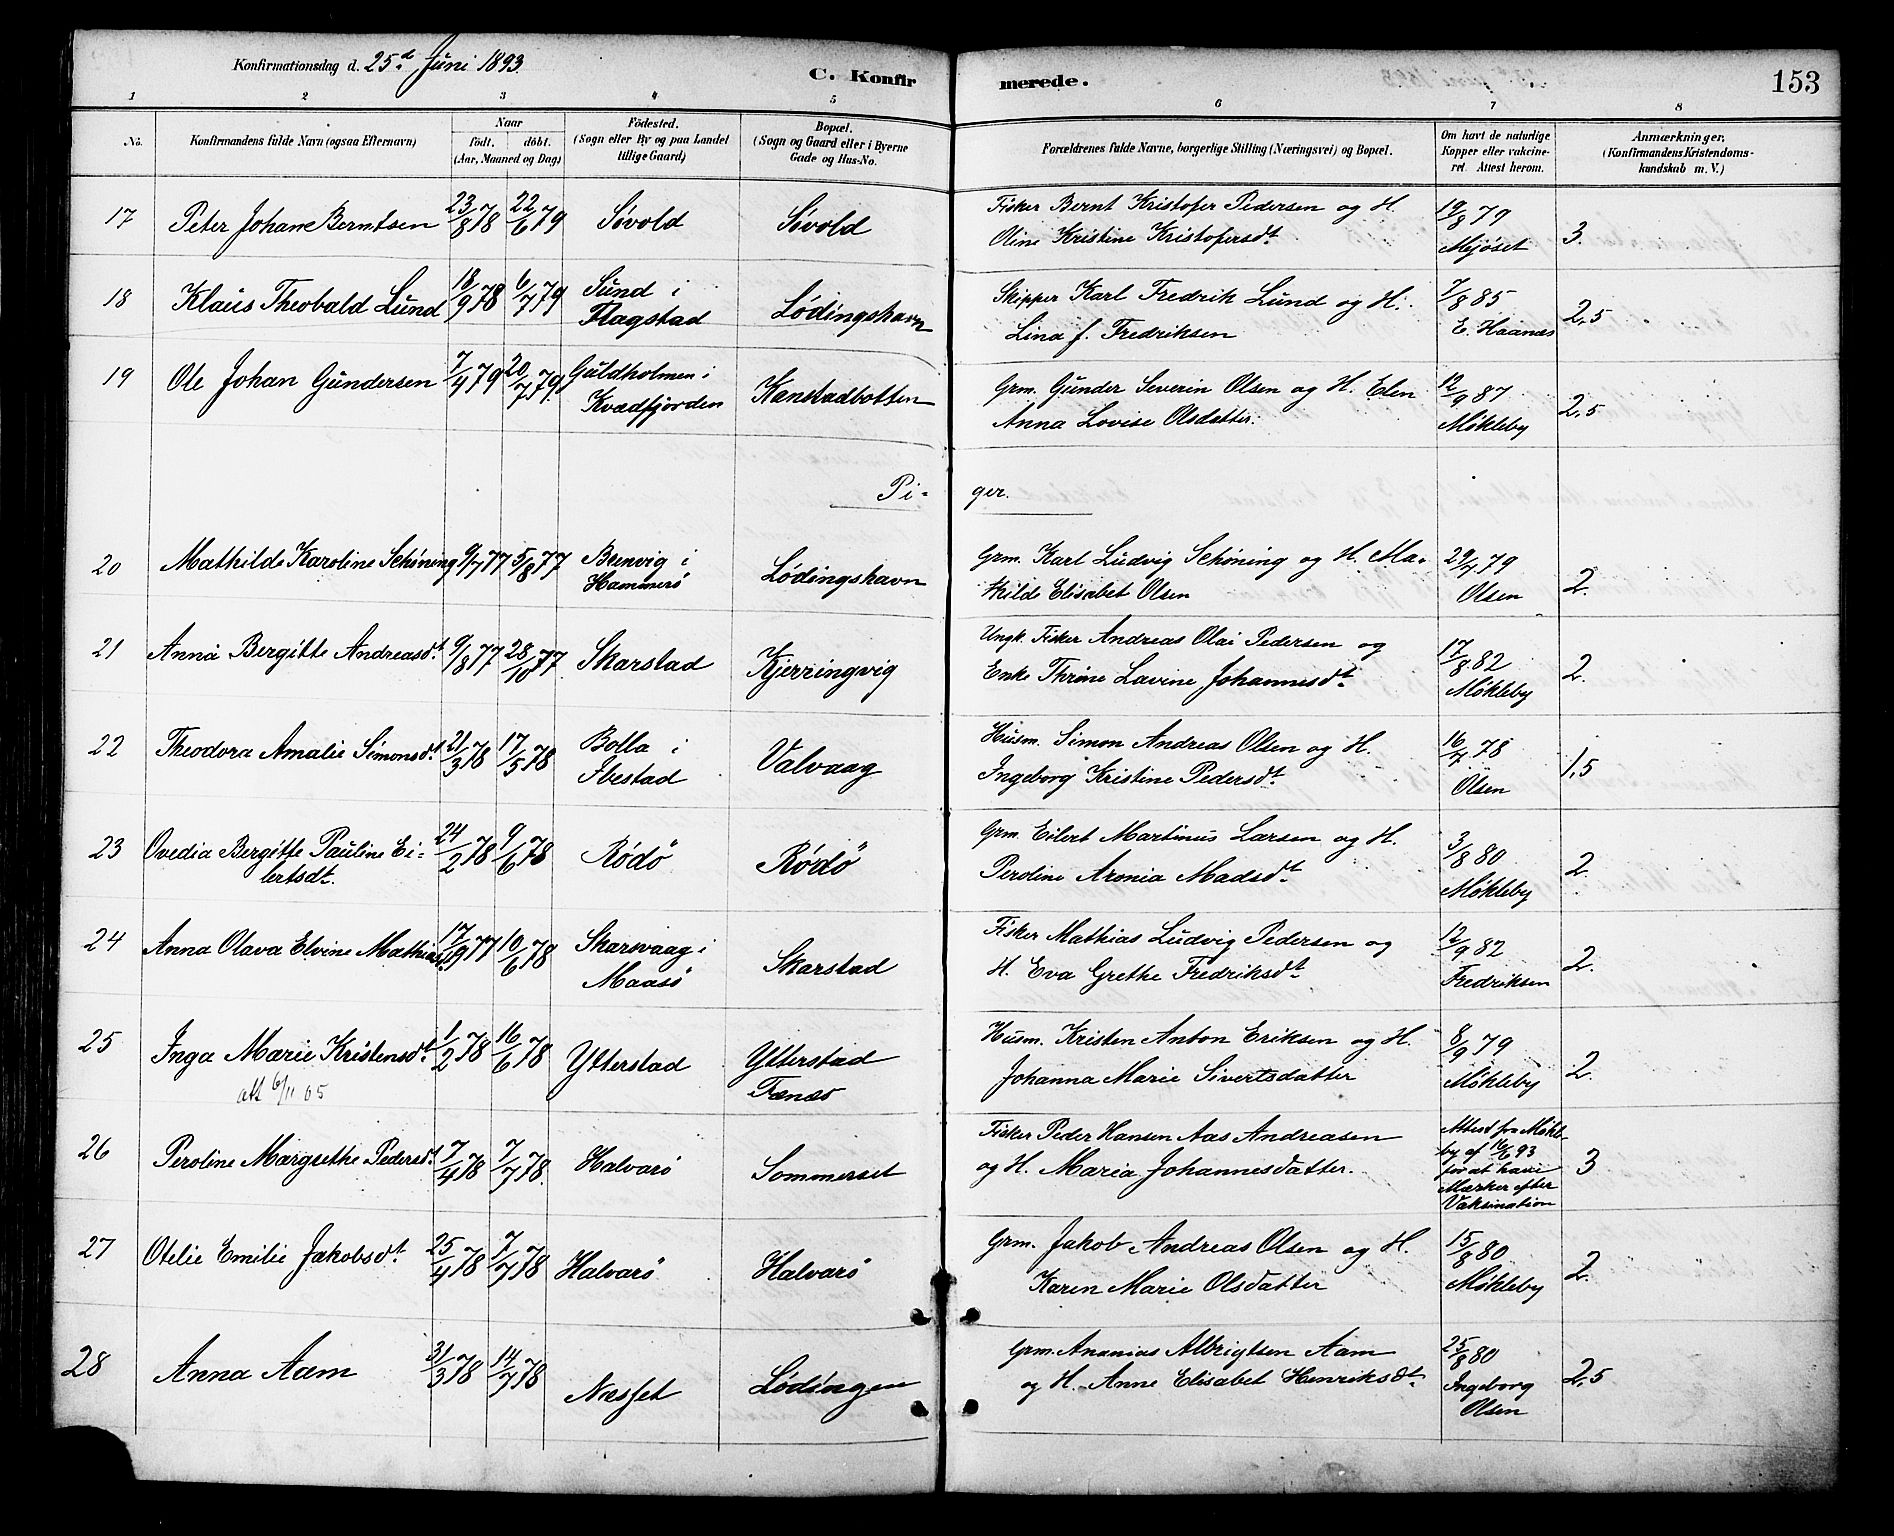 Konfirmationsdag d. 25.d Juni 1893.
C. Konfirmerede.
153
1 2 3 4 5 6 7 8
No.
Konfirmandens fulde Navn (ogsaa Efternavn)
Naar
født. døbt.
(Aar, Maaned og Dag)
Födested.
(Sogn eller By og paa Landet
tillige Gaard)
Bopæl.
(Sogn og Gaard eller i Byerne
Gade og Hus-No.
Forældrenes fulde Navne, borgerlige Stilling (Næringsvei) og Bopæl.
Om havt de naturlige
Kopper eller vakcine-
ret. Attest herom.
Anmærkninger,
(Konfirmandens Kristendoms-
kundskab m. V.)
17 Peter Johan Berntsen 23/8 78 22/6 79 Søvold Søvold
Fisker Bernt Kristofer Pedersen og H.
Oline Kristine Kristofersdt.
19/8 79
Mjøset
3.
18 Klaus Theobald Lund 18/9 78 6/7 79 Sund i
Flagstad
Lødingshavn
Skipper Karl Fredrik Lund og H.
Lina f. Fredriksen
7/8 85
E. Haanæs
2,5
19 Ole Johan Gundersen 7/4 79 20/7 79. Guldholmen i
Kvædfjorden
Kanstadbotten
Grm. Gunder Severin Olsen og H. Elen
Anna Lovise Olsdatter.
12/9 87
Møkleby
2,5
Pi- ger.
20 Mathilde Karoline Schøning 9/7 77 5/8 77
Hammerø
Lødingshavn
Grm. Karl Ludvig Schøning og H. Ma-
thilde Elisabet Olsen
29/4 79
Olsen
2.
21 Anna Bergitte Andreasdt. 9/8 77 28/10 77. Skarstad Kjerringvig
Ungk. Fisker Andreas Olai Pedersen og
Enke Thrine Lavine Johannesdt.
17/8 82
Møkleby
2.
22 Theodora Amalie Simonsdt. 21/3 78 17/5 78 Bolla i
Ibestad
Valvaag
Husm. Simon Andreas Olsen og H.
Ingeborg Kristine Pedersdt.
16/7 78
Olsen
1,5
23 Ovedia Bergitte Pauline Ei-
lertsdt.
24/2 78 9/6 78 Rödö Rödö
Grm. Eilert Martinus Larsen og H.
Peroline Aronia Madsdt.
3/8 80
Møkleby
2.
24 Anna Olava Elvine Mathiasdt. 17/9 77 10/6 78 Skarsvaag i
Maasø
Skarstad
Fisker Mathias Ludvig Pedersen og
H. Eva Grethe Fredriksdt.
12/9 82
Fredriksen
2.
25 Inga Marie Kristensdt. 1/2 78 16/6 78 Ytterstad Ytterstad
Fænæs
att 6/11 05
Husm. Kristen Anton Eriksen og H.
Johanna Marie Sivertsdatter
8/9 79
Møkleby
2.
26 Peroline Margrethe Pedersdt. 7/4 78 7/7 78. Halvarø Sommerset
Fisker Peder Hansen Aas Andreasen
og H. Maria Johannesdatter.
Attest fra Møkle-
by af 16/6 93
for at have
Mærker efter
Vaksination
3
27 Otelie Emilie Jakobsdt. 25/4 78 7/7 78 Halvarø Halvarø
Grm. Jakob Andreas Olsen og H.
Karen Marie Olsdatter
15/8 80
Møkleby
2.
28 Anna Aam 31/3 78 14/7 78 Næsset Lødingen
Grm. Ananias Albrigtsen Aam
og H. Anne Elisabet Henriksdt.
25/8 80
Ingeborg
Olsen
2,5